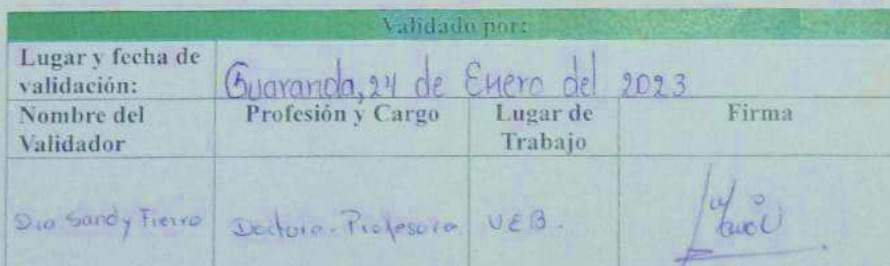 Validado por:
Lugar y fecha de validación: Guaranda, 24 de Enero del 2023
Nombre del Validador Profesión y Cargo Lugar de Trabajo Firma
Dra Sandy Fierro Doctora - Profesora UEB.